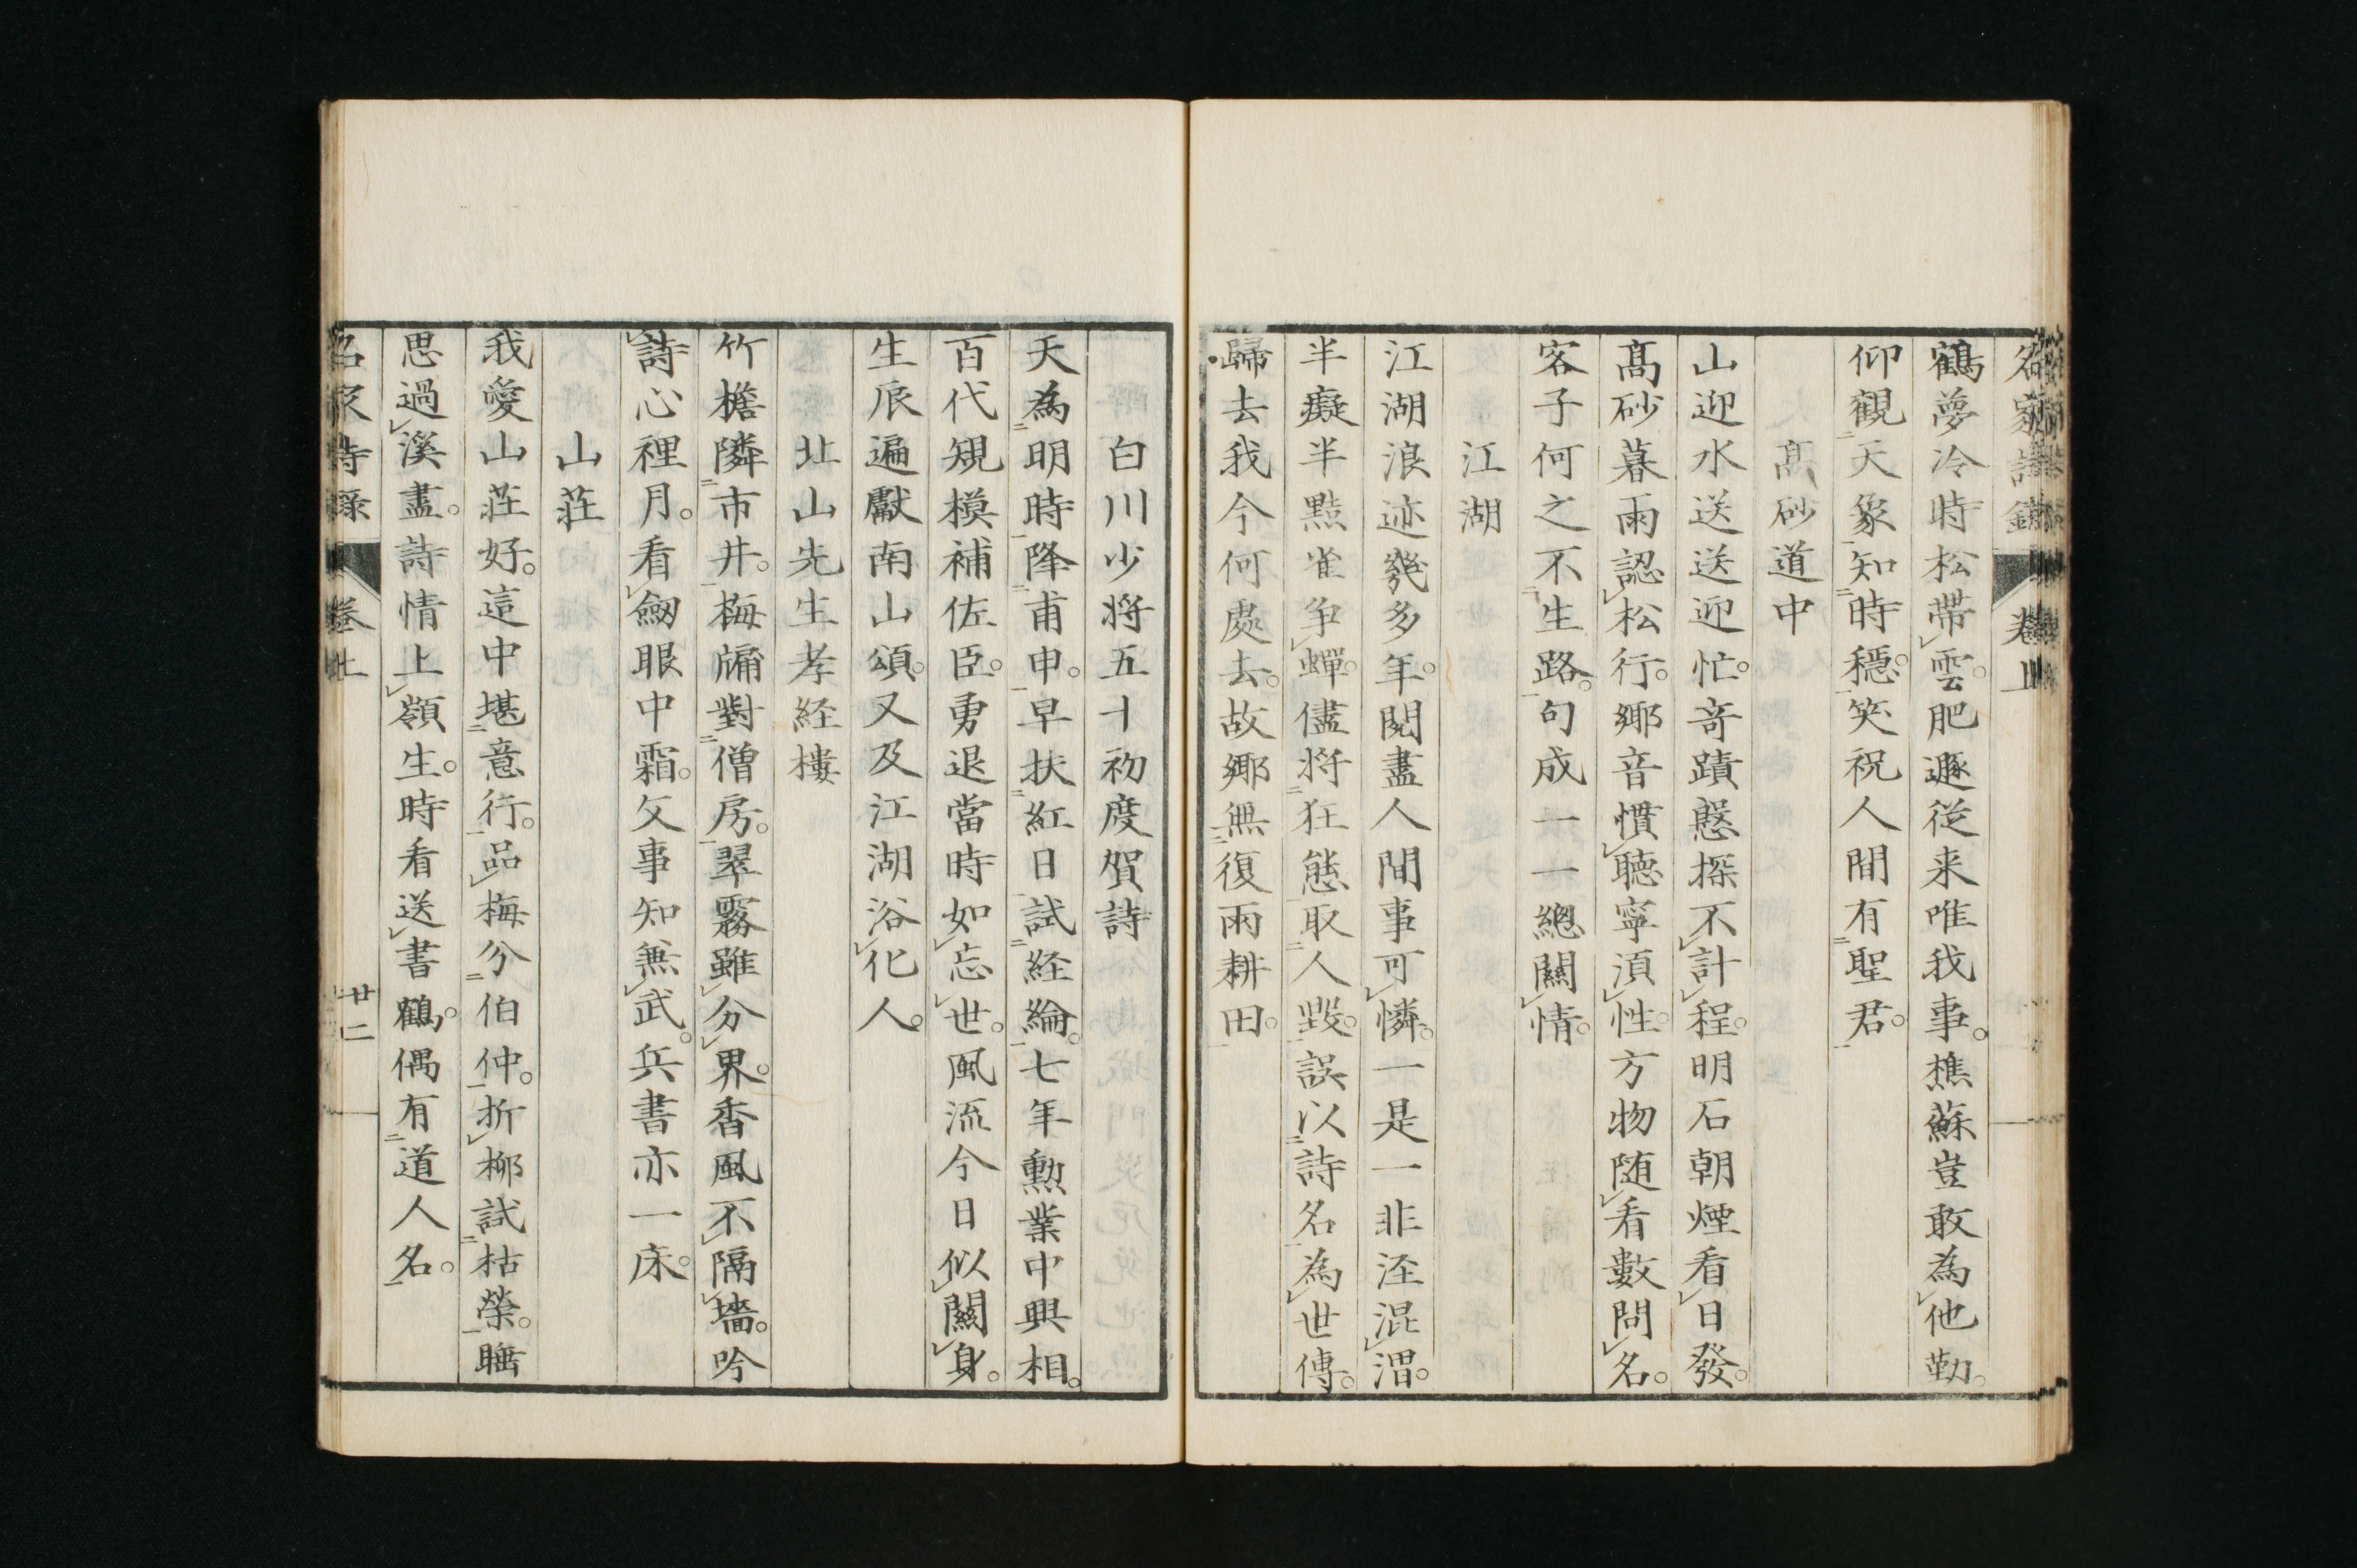 名家詩錄 卷上
鶴夢冷時松帶雲。肥遯從来唯我事。樵蘇豈敢為他勤。
仰觀天象知時穩。笑祝人間有聖君。
髙砂道中
山迎水送送迎忙。竒蹟懸探不計程。明石朝煙看日發。
髙砂暮雨認松行。鄉音慣聽寧湏性。方物随看數問名。
客子何之不生路。句成一一總關情。
江湖
江湖浪迹幾多年。閱盡人間事可憐。一是一非涇混渭。
半癡半黠雀争蟬。儘將狂態取人毀。誤以詩名為世傳。
歸去我今何處去。故鄉無復兩耕田。
白川少将五十初度賀詩
天為明時降甫申。早扶紅日試経綸。七年勲業中興相。
百代規模補佐臣。勇退當時如忘世。風流今日似關身。
生辰遍獻南山頌。又及江湖浴化人。
北山先生孝経樓
竹檐隣市井。梅牖對僧房。翠霧雖分界。香風不隔墻。吟
詩心裡月。看劔眼中霜。文事知無武。兵書亦一床。
山荘
我愛山荘好。這中堪意行。品梅分伯仲。折柳試枯榮。睡
思過溪盡。詩情上嶺生。時看送書鶴。偶有道人名。
名家詩錄 卷上 廿二